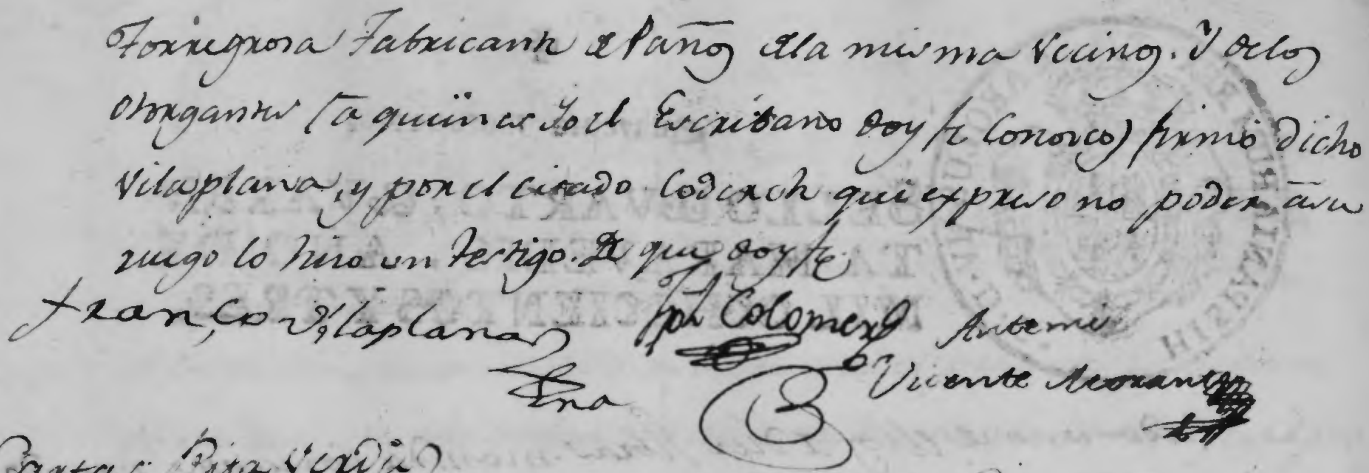 Torregrosa Fabricante de Paños dela misma Vecinos. Y delos
otorgantes (a quienes Yo el Escribano doy fe Conozco) firmó dicho
Vilaplana, y por el citado Coderch que expreso no poder ásu
ruego lo hizo un testigo. De que doy fe
Fran,co Vilaplana Colomer Antemi
Vicente Morant
Rita Verdú